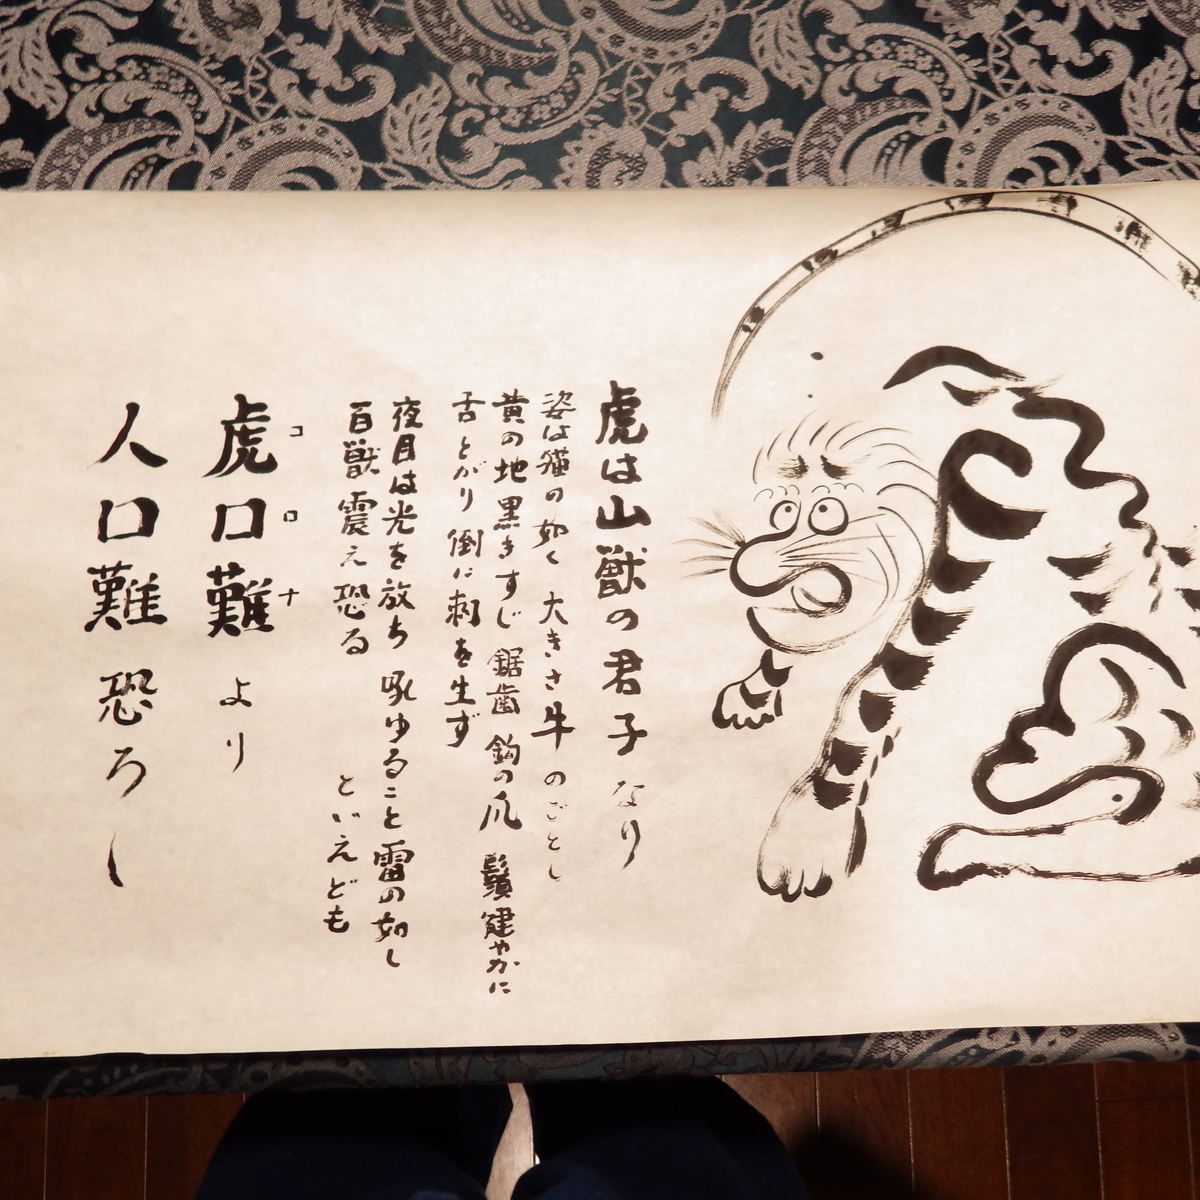 虎は山獣の君子なり
姿は猫の如く 大きさ牛のごとし
黄の地黒きすじ 鋸歯 鈎の爪 鬚健やかに
舌とがり 倒に刺を生ず
夜目は光を放ち 吼ゆること雷の如し
百獣震え恐る といえども
虎口難より
コロナ
人口難恐ろし